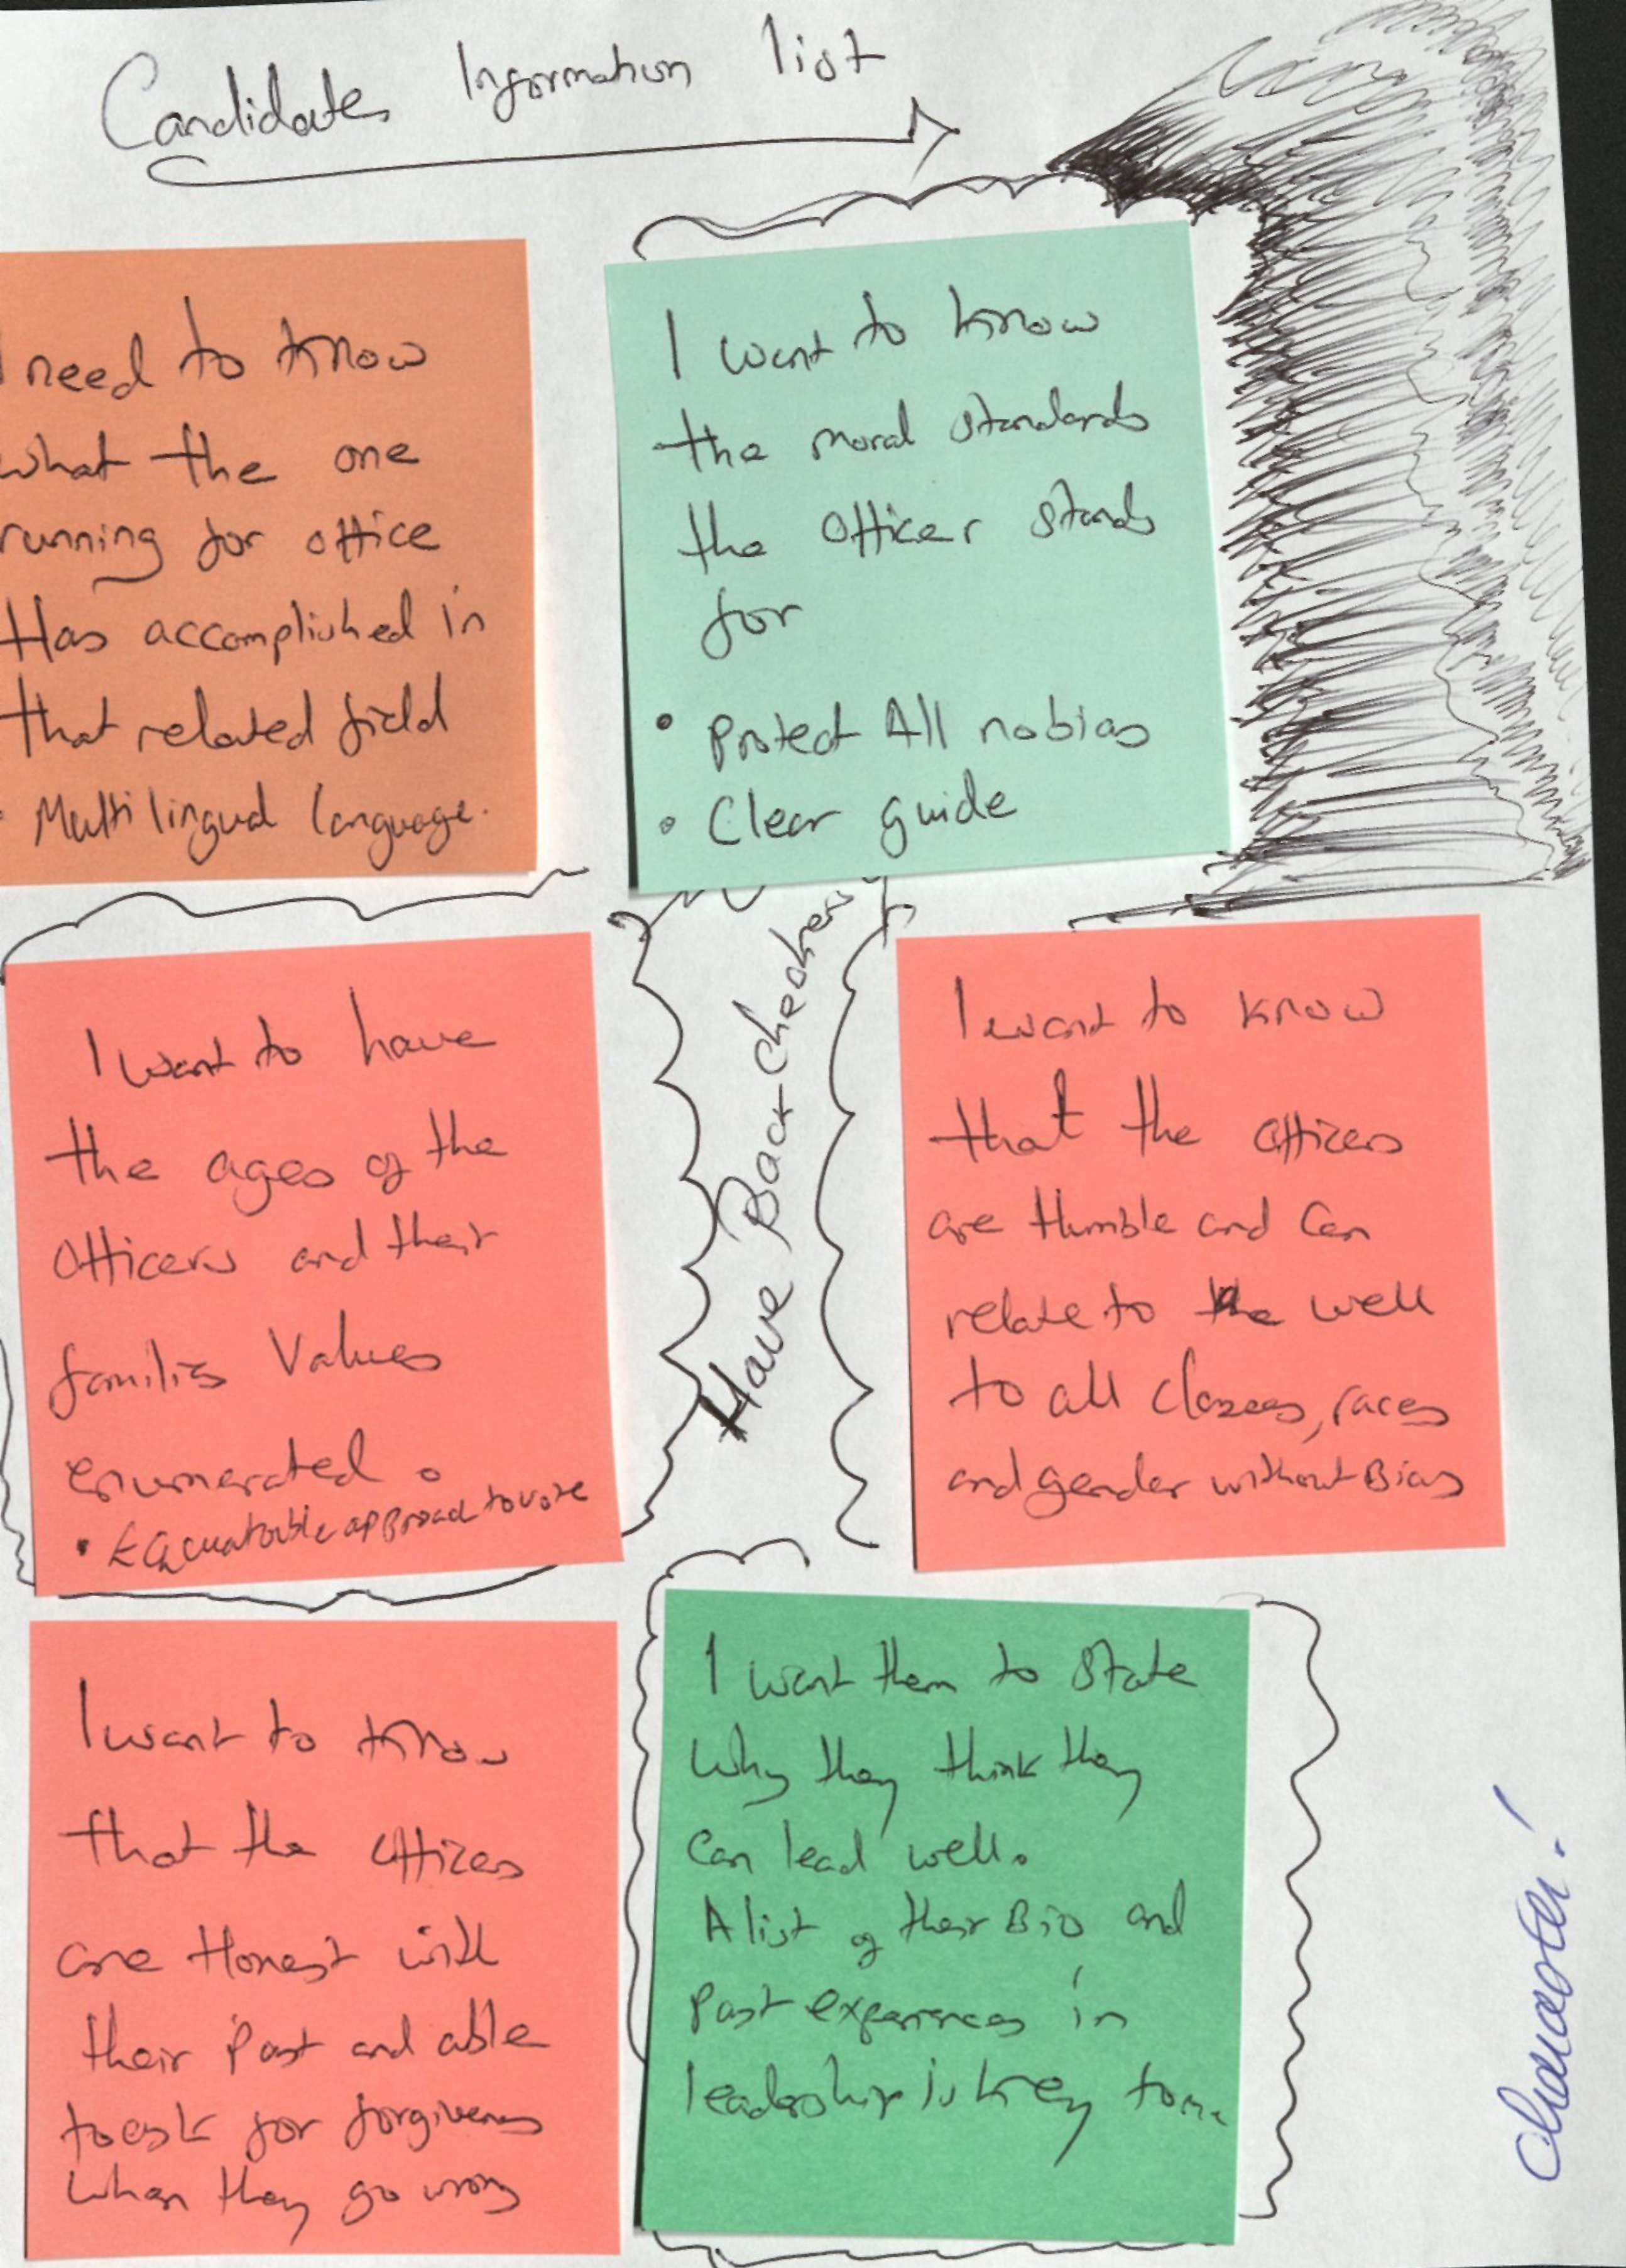 Candidates Information list
I need to know
what the one
running for office
Has accomplished in
that related field
• Multilingual language.
I want to know
the moral standards
the officer stands
for
• Protect All no bias
• Clear guide
I want to have
the ages of the
Officers and their
families Values
enumerated.
• approach to vote
Have Back checkers
I want to know
that the officers
are Humble and Can
relate to the well
to all classes, races
and gender without Bias
I want to know
that the officers
are Honest with
their Past and able
to ask for forgiveness
when they go wrong
I want them to state
Why they think they
Can lead well.
A list of their Bio and
Past experiences in
leadership is key to me
Character!